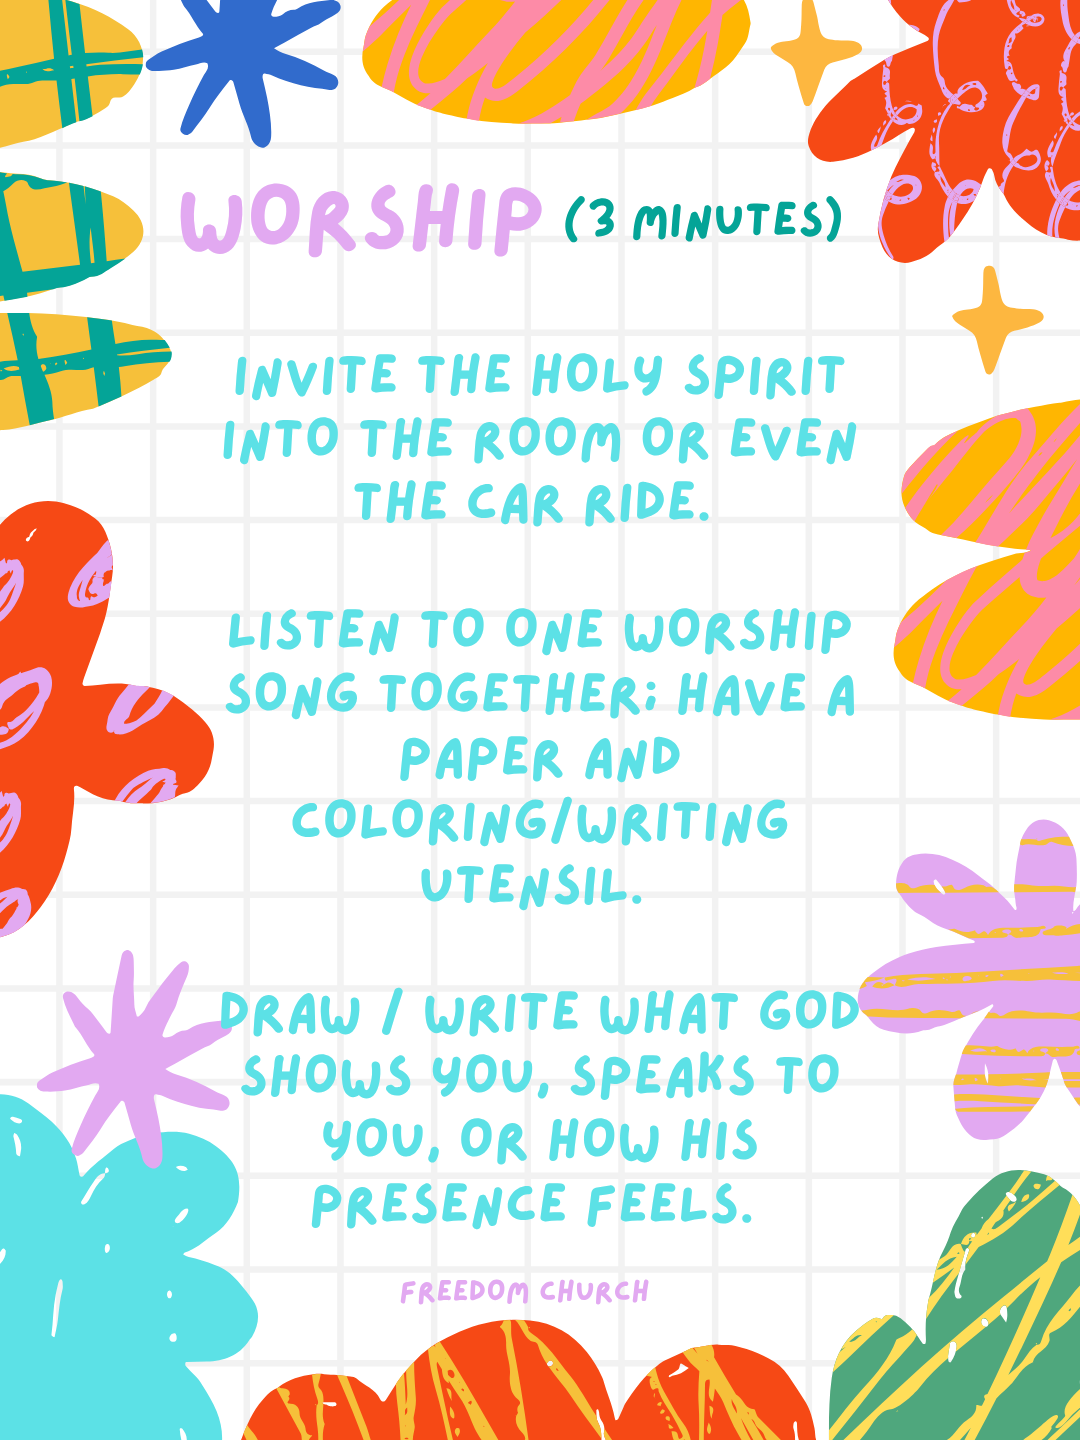 WORSHIP (3 MINUTES)
INVITE THE HOLY SPIRIT
INTO THE ROOM OR EVEN
THE CAR RIDE.
LISTEN TO ONE WORSHIP
SONG TOGETHER; HAVE A
PAPER AND
COLORING/WRITING
UTENSIL.
DRAW / WRITE WHAT GOD
SHOWS YOU, SPEAKS TO
YOU, OR HOW HIS
PRESENCE FEELS.
FREEDOM CHURCH